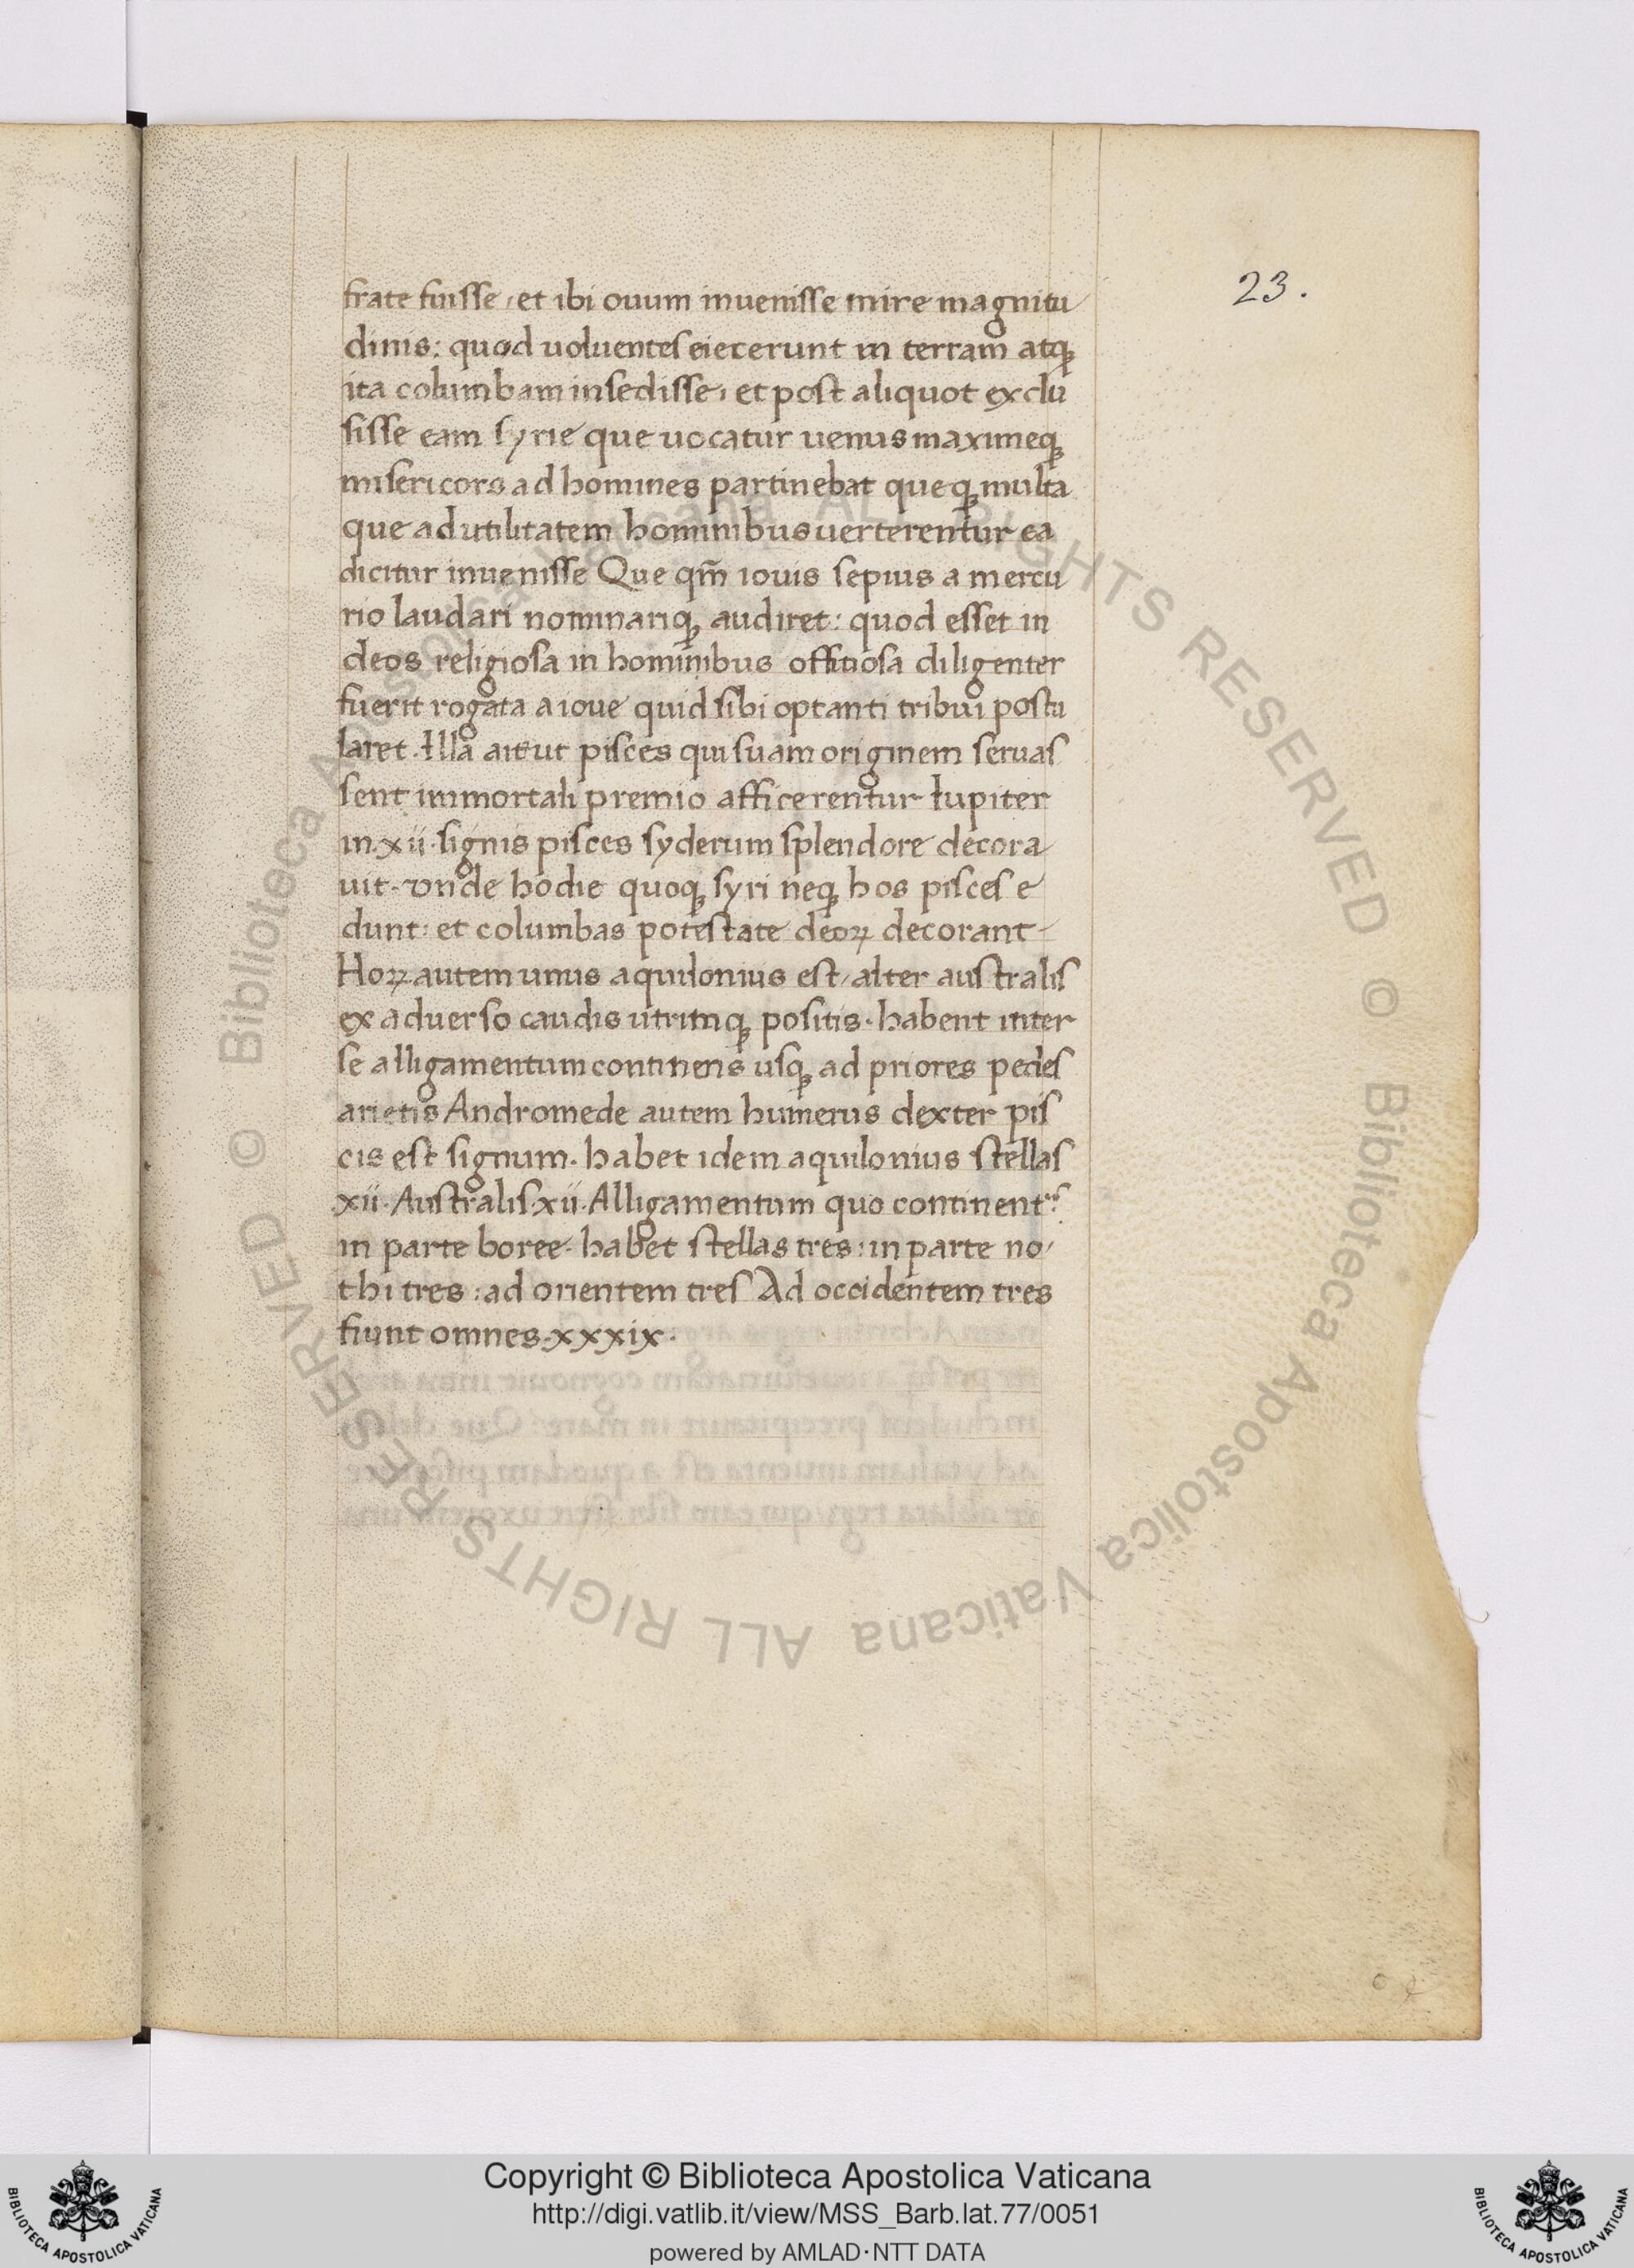 23.
frate fuisse, et ibi ouum inuenisse mire magnitu
dinis: quod uoluentes eiecerunt in terram atqꝫ
ita columbam insedisse, et post aliquot exclu
sisse eam syrie que uocatur uenus maximeqꝫ
misericors ad homines partinebat queqꝫ multa
que ad utilitatem hominibus uerterentur ea
dicitur inuenisse Que qm̄ iouis sepius a mercu
rio laudari nominariqꝫ audiret: quod esset in
deos religiosa in hominibus offitiosa diligenter
fuerit rogata a ioue quid sibi optanti tribui postu
laret. Illa ait ut pisces qui suam originem seruas
sent immortali premio afficerentur Iupiter
in.xii.signis pisces syderum splendore decora
uit. vnde hodie quoqꝫ syri neqꝫ hos pisces e
dunt: et columbas potestate deoꝝ decorant
Hoꝝ autem unus aquilonius est, alter australis
ex aduerso caudis utrimqꝫ positis. habent inter
se alligamentum continens usqꝫ ad priores pedes
arietis Andromede autem humerus dexter pis
cis est signum. habet idem aquilonius stellas
xii. Australis.xii. Alligamentum quo continent
in parte boree. habet stellas tres: in parte no
thi tres: ad orientem tres Ad occidentem tres
fiunt omnes.xxxix.
© Biblioteca Apostolica Vaticana ALL RIGHTS RESERVED © Biblioteca Apostolica Vaticana ALL RIGHTS RESERVED
Copyright © Biblioteca Apostolica Vaticana
http://digi.vatlib.it/view/MSS_Barb.lat.77/0051
powered by AMLAD·NTT DATA
BIBLIOTECA APOSTOLICA VATICANA
BIBLIOTECA APOSTOLICA VATICANA